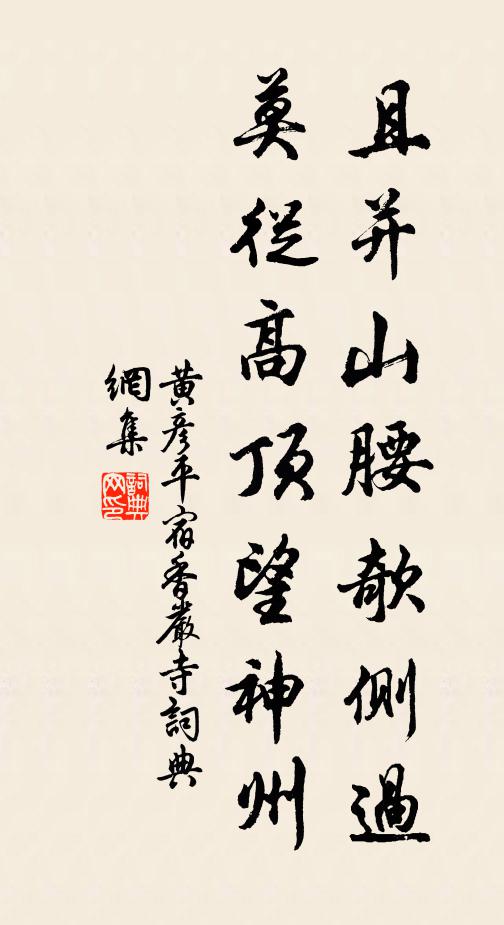 且并山腰欹側過
莫從高頂望神州
黃彦平宿香嚴寺詞典
網集
詞典
网印